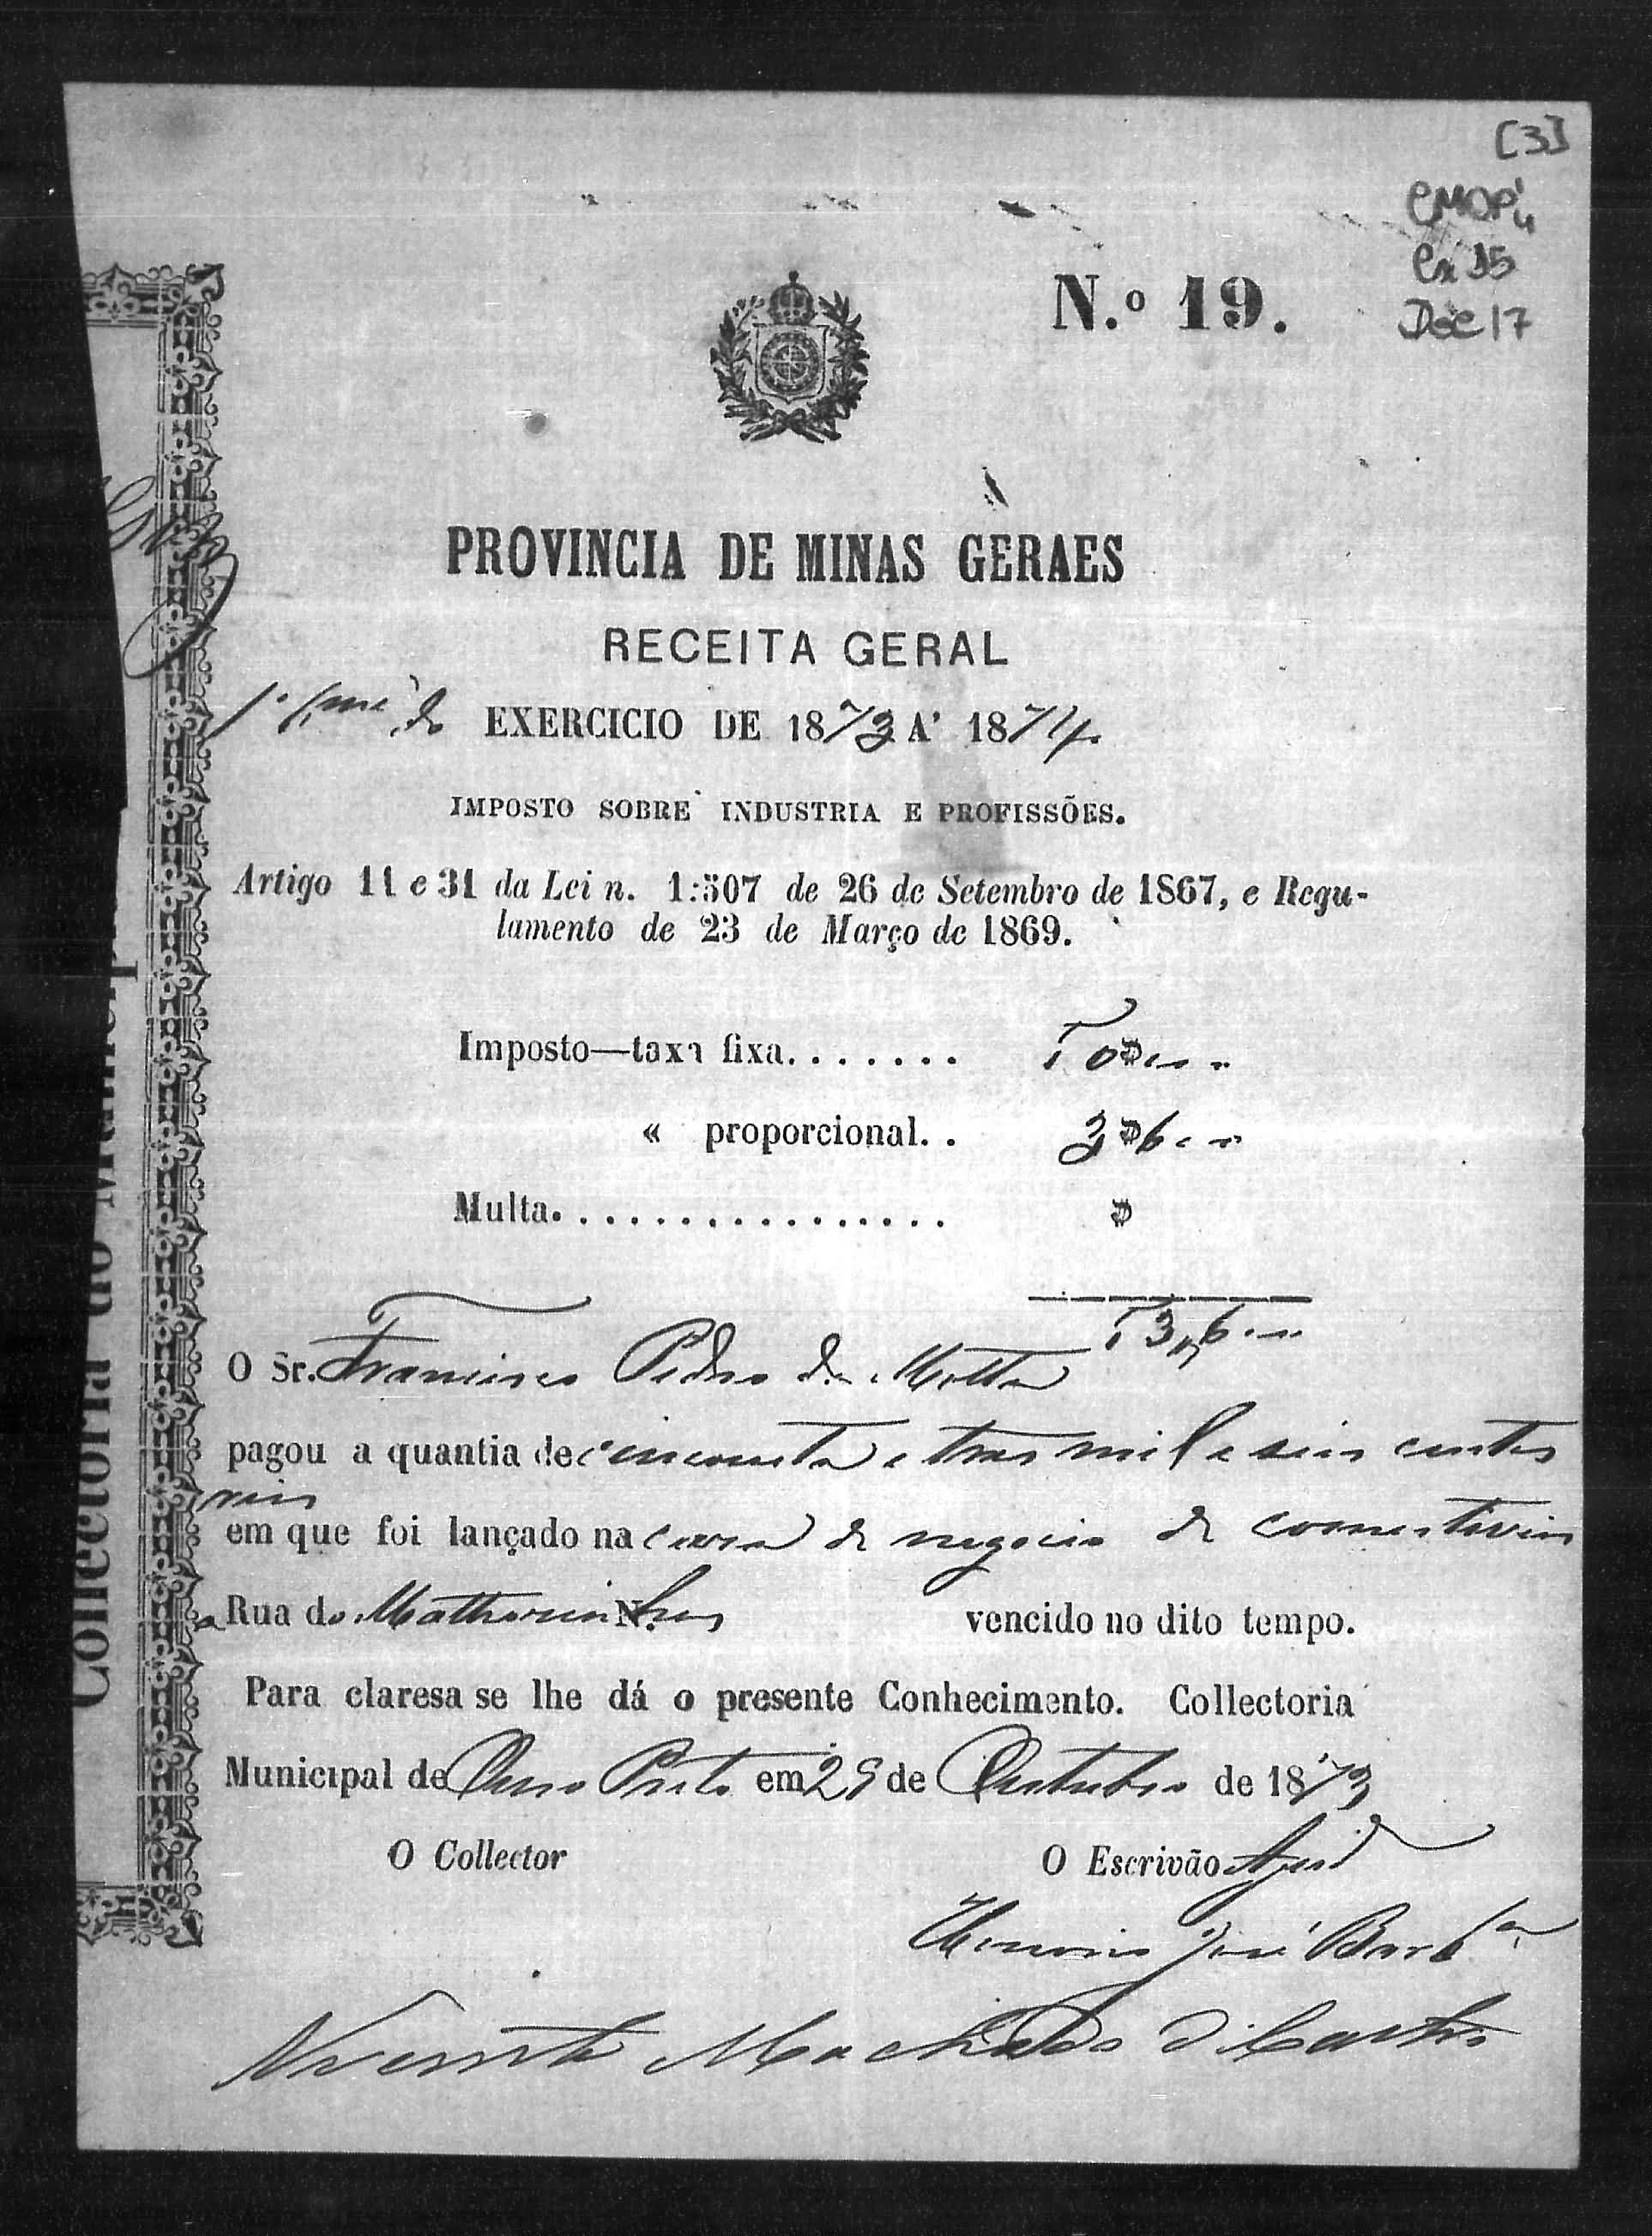 [3]
CMOP
Cx 15
Doc 17
N.º 19.
PROVINCIA DE MINAS GERAES
RECEITA GERAL
1º do EXERCICIO DE 1873 A' 1874.
IMPOSTO SOBRE INDUSTRIA E PROFISSÕES.
Artigo 11 e 31 da Lei n. 1:507 de 26 de Setembro de 1867, e Regu-
lamento de 23 de Março de 1869.
Imposto—taxa fixa.......
« proporcional. . 3$6
Multa................ $
536
O Sr. Francisco Pedro da Motta
pagou a quantia de cincoenta e tres mil e seis centos
reis
em que foi lançado na casa de negocio de comestiveis
a Rua do N.
vencido no dito tempo.
Para claresa se lhe dá o presente Conhecimento. Collectoria
Municipal de Ouro Preto em 29 de Outubro de 1873
O Collector
O Escrivão Ajud
José Barbª
Vicente Machado de Castro
Collectoria do Municip